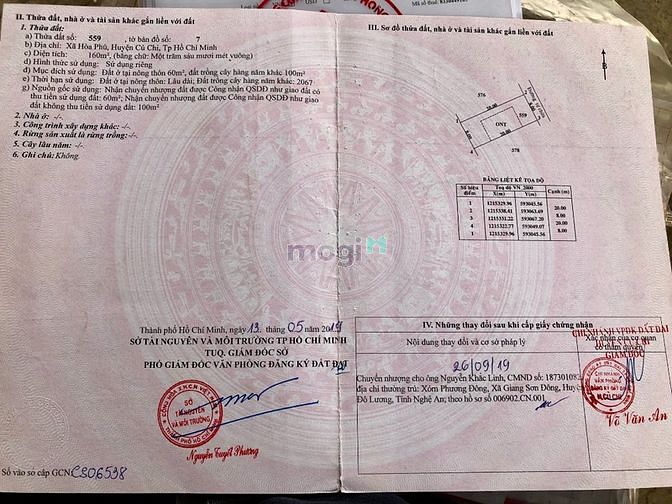 II. Thửa đất, nhà ở và tài sản khác gắn liền với đất
1. Thửa đất:
a) Thửa đất số: 559 , tờ bản đồ số: 7
b) Địa chỉ: Xã Hòa Phú, Huyện Củ Chi, Tp Hồ Chí Minh
c) Diện tích: 160m², (bằng chữ: Một trăm sáu mươi mét vuông)
d) Hình thức sử dụng: Sử dụng riêng
đ) Mục đích sử dụng: Đất ở tại nông thôn 60m²; đất trồng cây hàng năm khác 100m²
e) Thời hạn sử dụng: Đất ở tại nông thôn: Lâu dài; Đất trồng cây hàng năm khác: 2067
g) Nguồn gốc sử dụng: Nhận chuyển nhượng đất được Công nhận QSDĐ như giao đất có
thu tiền sử dụng đất: 60m²; Nhận chuyển nhượng đất được Công nhận QSDĐ như giao
đất không thu tiền sử dụng đất: 100m²
2. Nhà ở: -/-.
3. Công trình xây dựng khác: -/-.
4. Rừng sản xuất là rừng trồng: -/-.
5. Cây lâu năm: -/-.
6. Ghi chú: Không.
Thành phố Hồ Chí Minh, ngày 13 tháng 05 năm 2019
SỞ TÀI NGUYÊN VÀ MÔI TRƯỜNG TP HỒ CHÍ MINH
TUQ. GIÁM ĐỐC SỞ
PHÓ GIÁM ĐỐC VĂN PHÒNG ĐĂNG KÝ ĐẤT ĐAI
SỞ
TÀI NGUYÊN
VÀ MÔI TRƯỜNG
Nguyễn Tuyết Phương
Số vào sổ cấp GCN: CS06538
mogi
III. Sơ đồ thửa đất, nhà ở và tài sản khác gắn liền với đất
B
576
1
20.00
2
559
ONT
8.00
4
20.00
3
578
BẢNG LIỆT KÊ TỌA ĐỘ
Số hiệu điểm Toạ độ VN_2000 Cạnh (m)
X(m) Y(m)
1 1215329.96 593045.56
20.00
2 1215338.41 593063.69
8.00
3 1215331.22 593067.20
20.00
4 1215322.77 593049.07
8.00
1 1215329.96 593045.56
IV. Những thay đổi sau khi cấp giấy chứng nhận
Nội dung thay đổi và cơ sở pháp lý
Xác nhận của cơ quan
có thẩm quyền
CHI NHÁNH VPĐK ĐẤT ĐAI
GIÁM ĐỐC
26/09/19
Chuyển nhượng cho ông Nguyễn Khắc Linh, CMND số: 187301083
địa chỉ thường trú: Xóm Phương Đông, Xã Giang Sơn Đông, Huyện
Đô Lương, Tỉnh Nghệ An; theo hồ sơ số 006902.CN.001
CHI NHÁNH
VĂN PHÒNG
ĐĂNG KÝ ĐẤT ĐAI
H.CỦ CHI
Võ Văn An